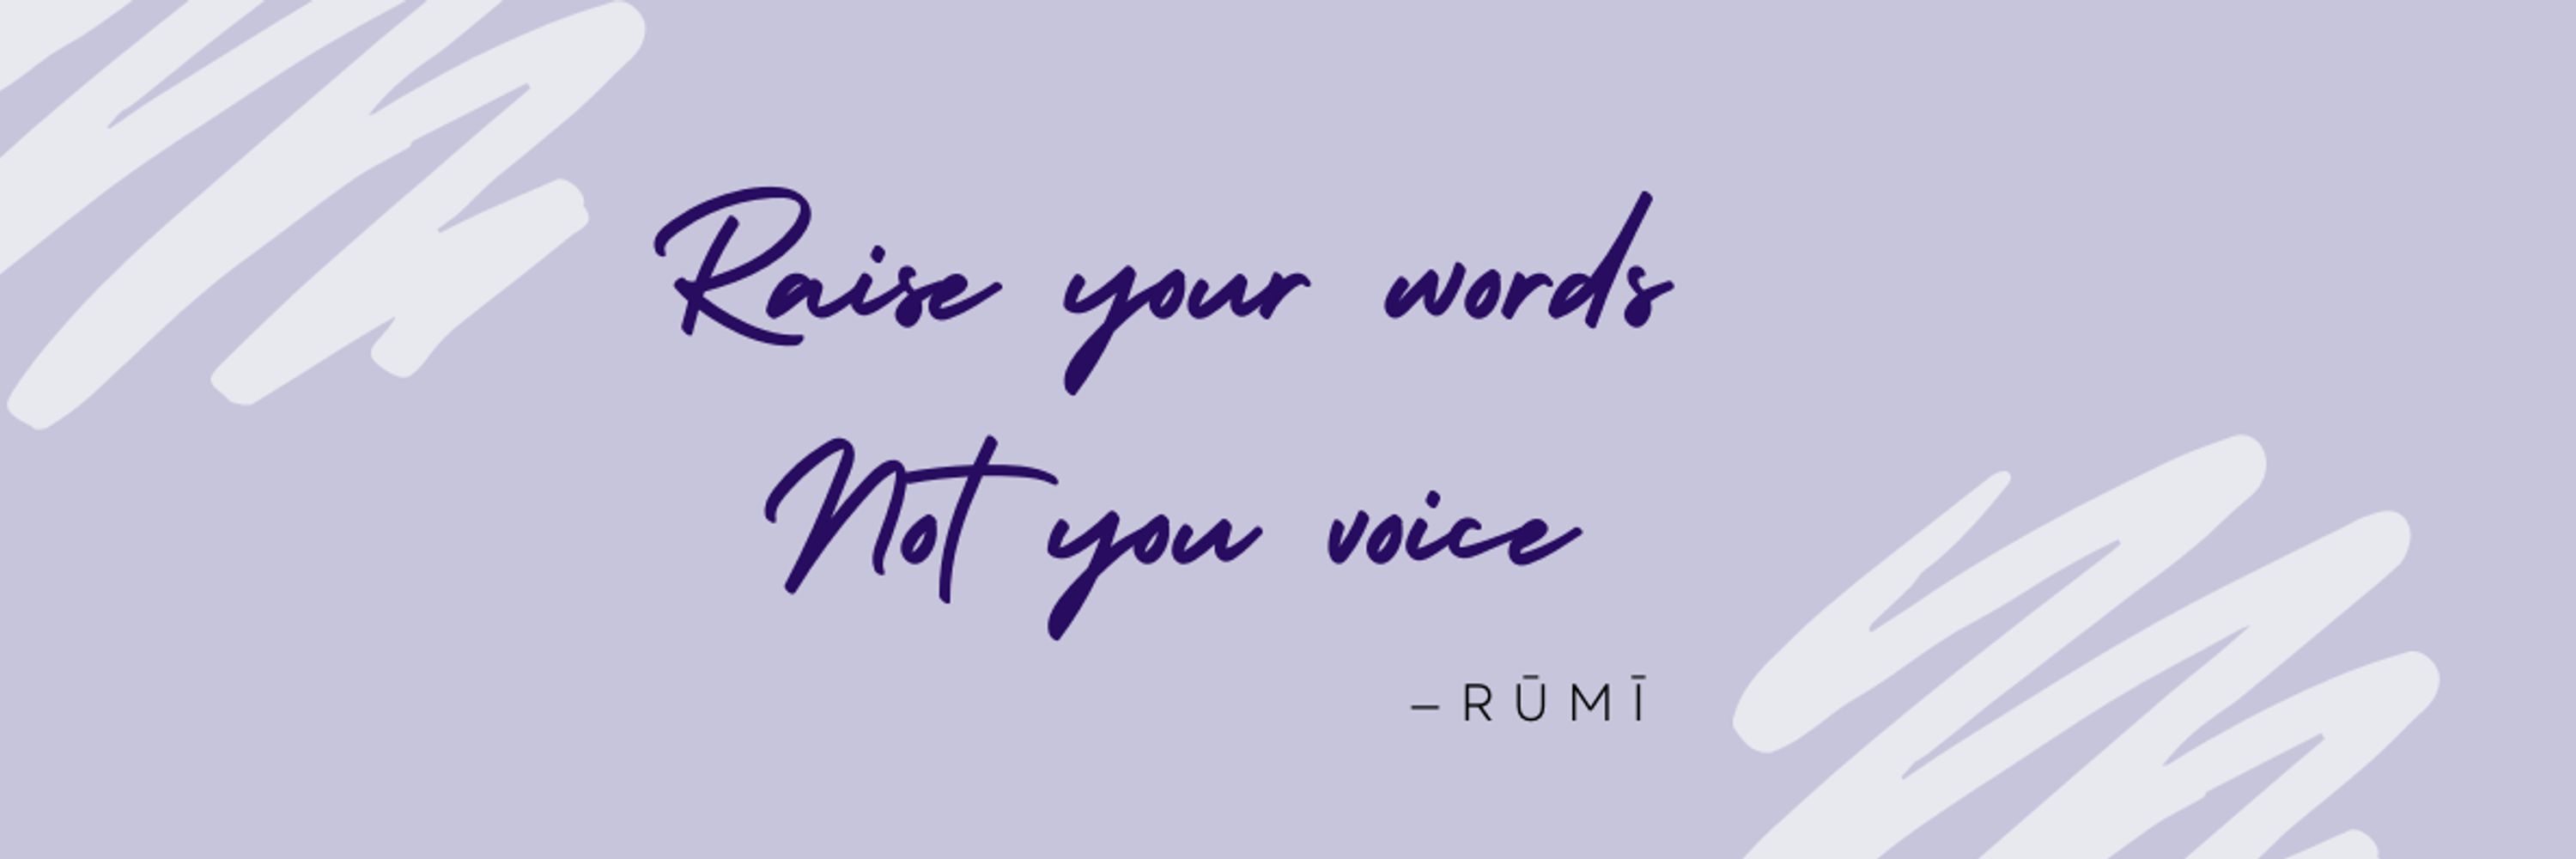 Raise your words
Not you voice
– RŪMĪ